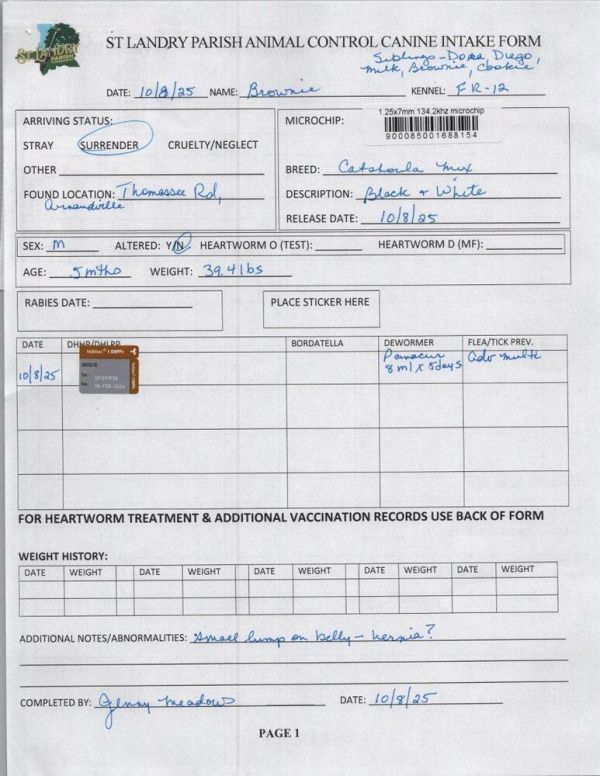 ST LANDRY PARISH
ST LANDRY PARISH ANIMAL CONTROL CANINE INTAKE FORM
Siblings - Dora, Diego,
Milk, Brownie, Cookie
DATE: 10/8/25 NAME: Brownie KENNEL: FR-12
ARRIVING STATUS:
STRAY SURRENDER CRUELTY/NEGLECT
OTHER
FOUND LOCATION: Thomassee Rd,
Arnaudville
MICROCHIP: 1.25x7mm 134.2khz microchip
900085001688154
BREED: Catahoula mix
DESCRIPTION: Black + White
RELEASE DATE: 10/8/25
SEX: M ALTERED: Y/N HEARTWORM O (TEST): HEARTWORM D (MF):
AGE: 5 mths WEIGHT: 39.4 lbs
RABIES DATE:
PLACE STICKER HERE
DATE DHHP/DHLPP BORDATELLA DEWORMER FLEA/TICK PREV.
10/8/25 Nobivac 1 DAPPv Panacur 8 ml x 5 days Adv multi
FOR HEARTWORM TREATMENT & ADDITIONAL VACCINATION RECORDS USE BACK OF FORM
WEIGHT HISTORY:
DATE WEIGHT DATE WEIGHT DATE WEIGHT DATE WEIGHT DATE WEIGHT
ADDITIONAL NOTES/ABNORMALITIES: Small lump on belly - hernia?
COMPLETED BY: Jenny Meadows DATE: 10/8/25
PAGE 1